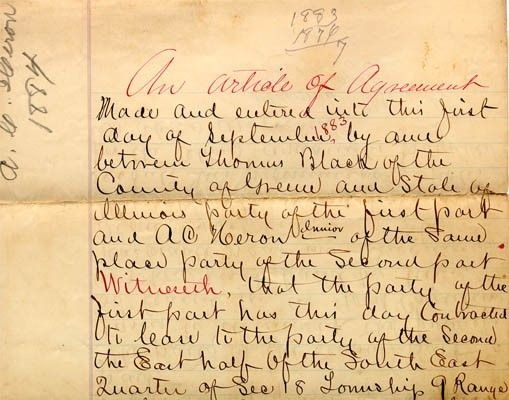 1883
1874
9
1884
An Article of Agreement
Made and entered into this first
day of September 1883, by and
between Thomas Black of the
County of Greene and State of
Illinois party of the first part
and A C Heron Junior of the Same
place party of the Second part
Witnesseth, that the party of the
first part has this day Contracted
to lease to the party of the Second
the East half of the South East
Quarter of Sec 18 Township 9 Range